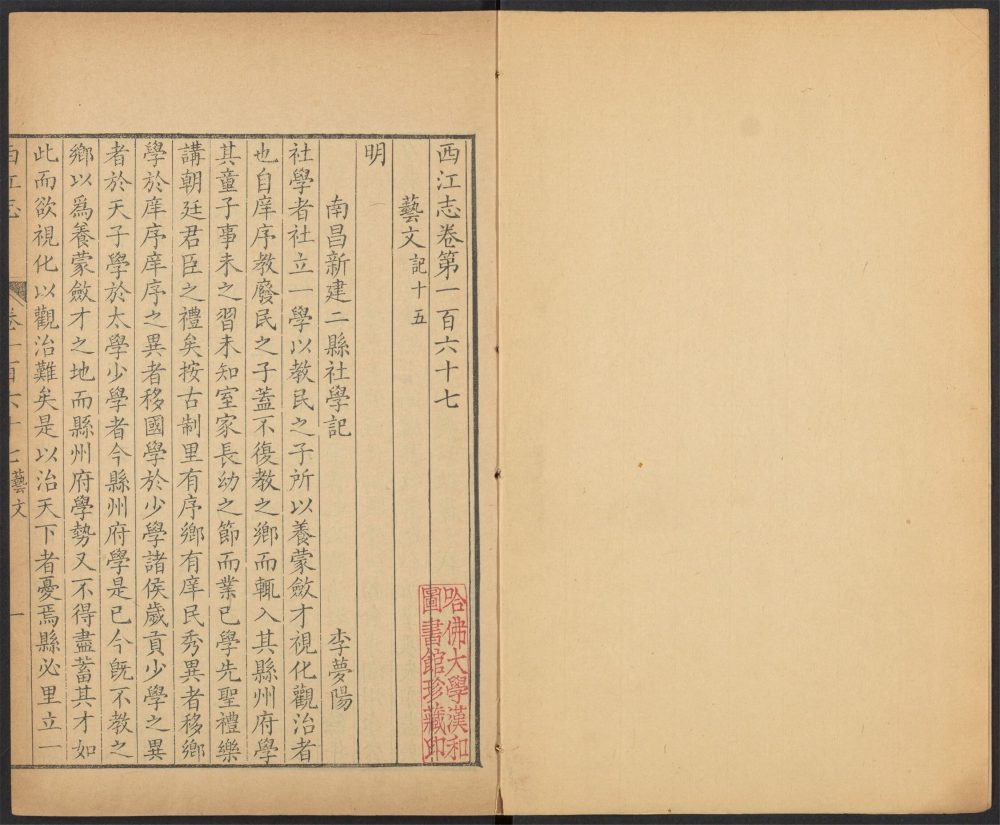 西江志卷第一百六十七
藝文記十五
明
南昌新建二縣社學記 李夢陽
社學者社立一學以教民之子所以養蒙斂才視化觀治者
也自庠序教廢民之子蓋不復教之鄉而輒入其縣州府學
其童子事未之習未知室家長幼之節而業已學先聖禮樂
講朝廷君臣之禮矣按古制里有序鄉有庠民秀異者移鄉
學於庠序庠序之異者移國學於少學諸侯歲貢少學之異
者於天子學於太學少學者今縣州府學是已今既不教之
鄉以為養蒙斂才之地而縣州府學勢又不得盡蓄其才如
此而欲視化以觀治難矣是以治天下者憂焉縣必里立一
西江志 卷一百六十七藝文 一
哈佛大學漢和
圖書館珍藏印